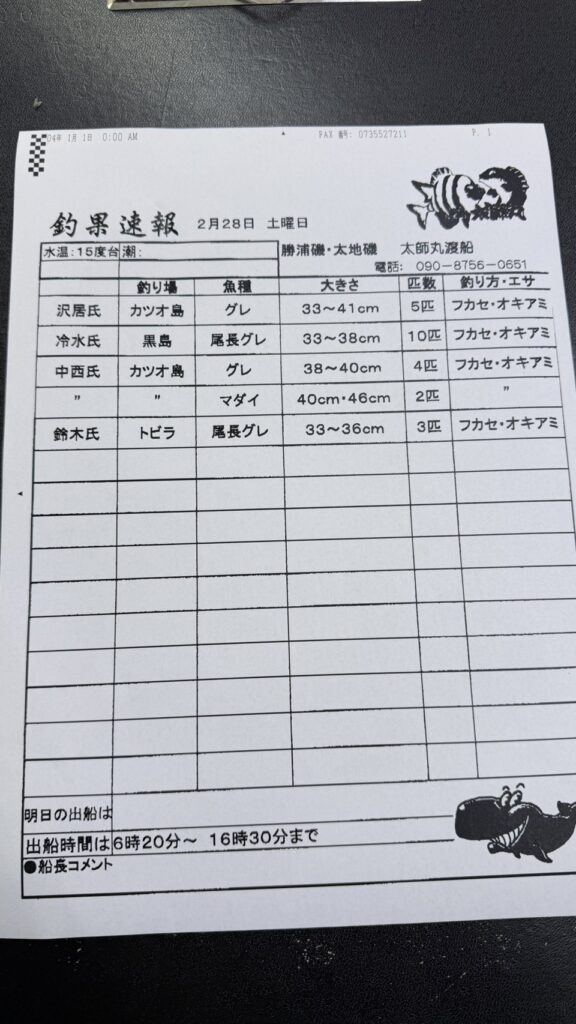 04年 1月 1日 0:00 AM FAX 番号: 0735527211 P. 1
釣果速報 2月28日 土曜日
水温:15度台 潮: 勝浦磯・太地磯 太師丸渡船
電話: 090-8756-0651
釣り場 魚種 大きさ 匹数 釣り方・エサ
沢居氏 カツオ島 グレ 33～41cm 5匹 フカセ・オキアミ
冷水氏 黒島 尾長グレ 33～38cm 10匹 フカセ・オキアミ
中西氏 カツオ島 グレ 38～40cm 4匹 フカセ・オキアミ
〃 〃 マダイ 40cm・46cm 2匹 〃
鈴木氏 トビラ 尾長グレ 33～36cm 3匹 フカセ・オキアミ
明日の出船は
出船時間は 6時20分～ 16時30分まで
●船長コメント